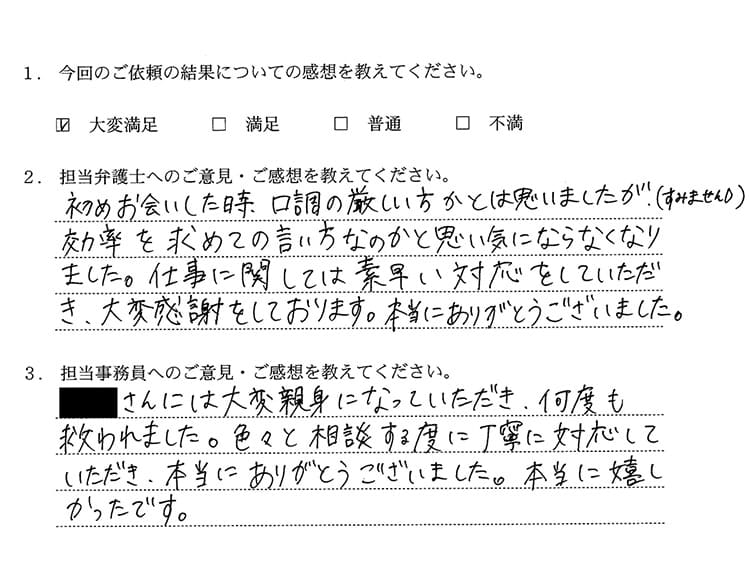 1. 今回のご依頼の結果についての感想を教えてください。
☑ 大変満足 □ 満足 □ 普通 □ 不満
2. 担当弁護士へのご意見・ご感想を教えてください。
初めお会いした時、口調の厳しい方かとは思いましたが、(すみません)
効率を求めての言い方なのかと思い気にならなくなり
ました。仕事に関しては素早い対応をしていただ
き、大変感謝をしております。本当にありがとうございました。
3. 担当事務員へのご意見・ご感想を教えてください。
さんには大変親身になっていただき、何度も
救われました。色々と相談する度に丁寧に対応して
いただき、本当にありがとうございました。本当に嬉し
かったです。